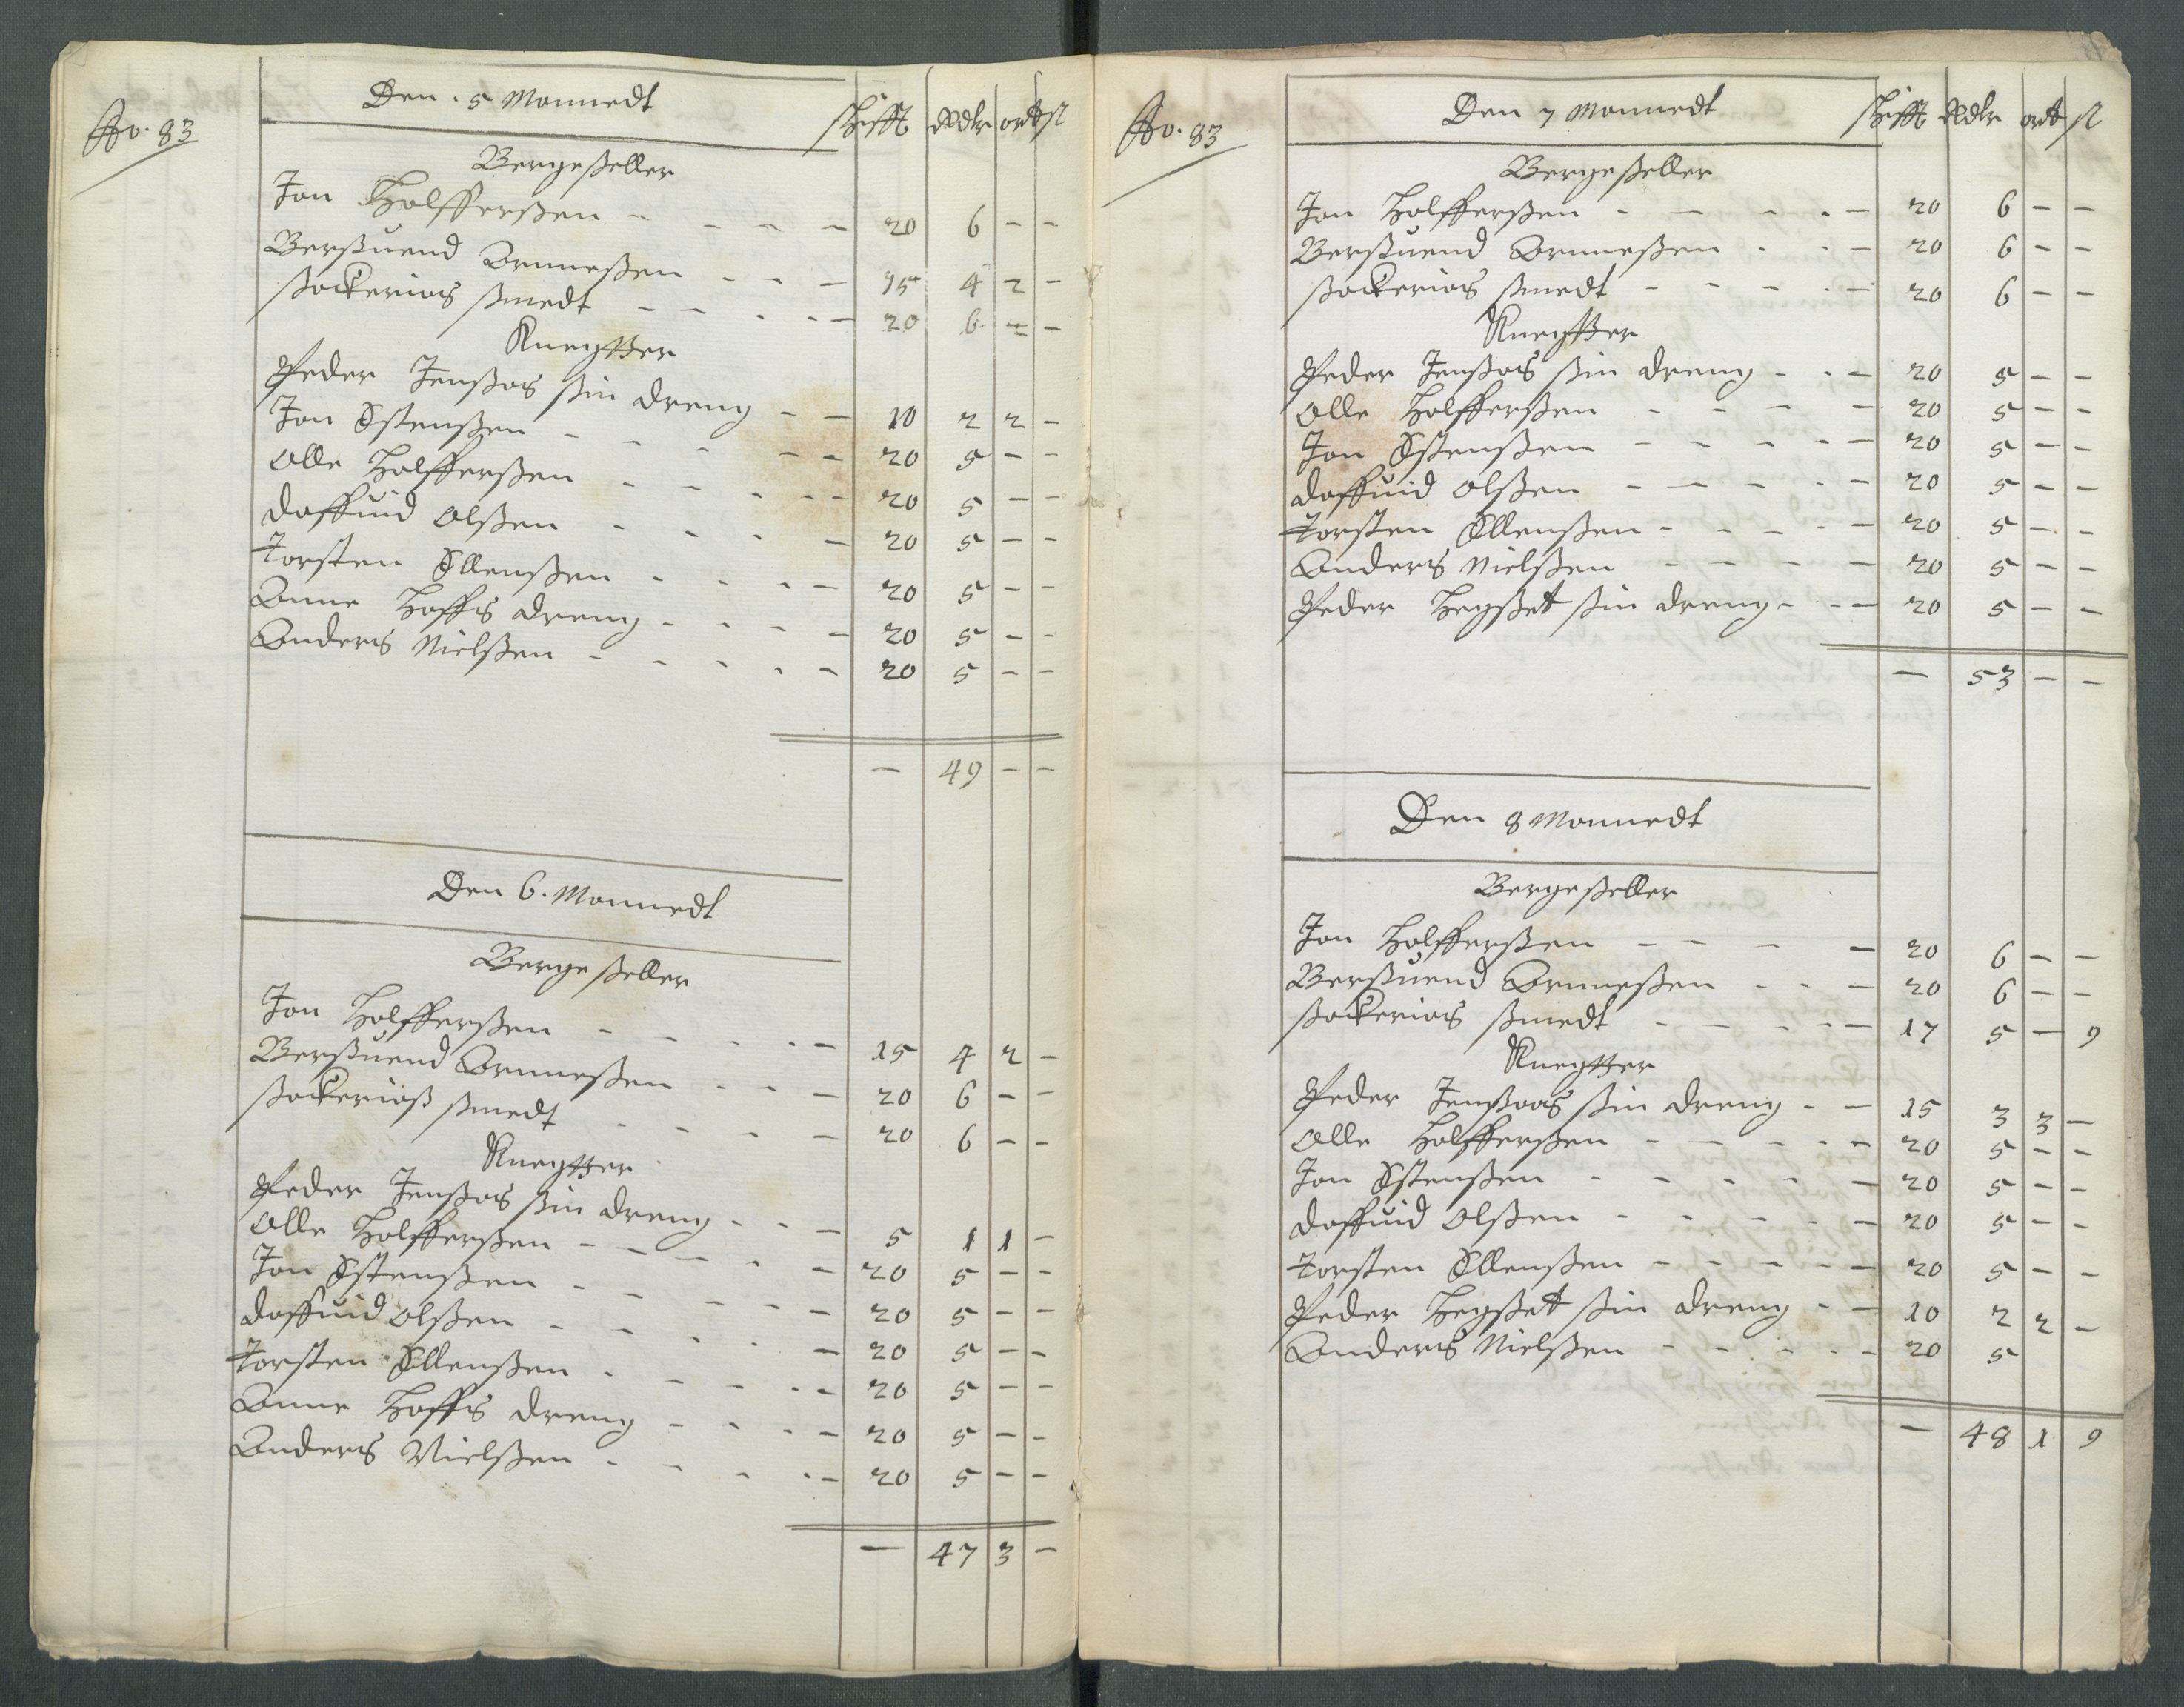 Ao. 83
Den 5 Monnedt
skifft Rdlr ordt sl
Bergeseller
Jon Holffersen - - - - 20 6 - -
Bersuend Arnnesen - - - 15 4 2 -
Sackerias Smedt - - - - - 20 6 - -
Knegtter
Peder Jensøs sin dreng - - 10 2 2 -
Jon Østensen - - - - - 20 5 - -
Olle Holffersen - - - - - 20 5 - -
Daffuid Olsen - - - - 20 5 - -
Torsten Ellensen - - - - - 20 5 - -
Anne Hoffs dreng - - - - - 20 5 - -
Anders Nielsen - - - - - 20 5 - -
- 49 - -
Den 6. Monnedt
Bergeseller
Jon Holffersen - - - - - 15 4 2 -
Bersuend Arnnesen - - - 20 6 - -
Sackerias Smedt - - - - 20 6 - -
Knegtter
Peder Jensøs sin dreng - - - 5 1 1 -
Olle Holffersen - - - - - - 20 5 - -
Jon Østensen - - - - - 20 5 - -
Daffuid Olsen - - - - - 20 5 - -
Torsten Ellensen - - - - - 20 5 - -
Anne Hoffs dreng - - - - - 20 5 - -
Anders Nielsen - - - - - 20 5 - -
- 47 3 -
Ao. 83
Den 7 Monnedt
skifft Rdlr ordt sl
Bergeseller
Jon Holffersen - - - - - 20 6 - -
Bersuend Arnnesen - - - 20 6 - -
Sackerias Smedt - - - - - 20 6 - -
Knegtter
Peder Jensøs sin dreng - - - 20 5 - -
Olle Holffersen - - - - 20 5 - -
Jon Østensen - - - - - 20 5 - -
Daffuid Olsen - - - - - 20 5 - -
Torsten Ellensen - - - - - 20 5 - -
Anders Nielsen - - - - 20 5 - -
Peder Hegset sin dreng - - - 20 5 - -
- 53 - -
Den 8 Monnedt
Bergeseller
Jon Holffersen - - - - 20 6 - -
Bersuend Arnnesen - - - 20 6 - -
Sackerias Smedt - - - - - 17 5 - 9
Knegtter
Peder Jensøs sin dreng - - 15 3 3 -
Olle Holffersen - - - - - 20 5 - -
Jon Østensen - - - - - 20 5 - -
Daffuid Olsen - - - - - 20 5 - -
Torsten Ellensen - - - - - 20 5 - -
Peder Hegset sin dreng - - 10 2 2 -
Anders Nielsen - - - - - 20 5
- 48 1 9